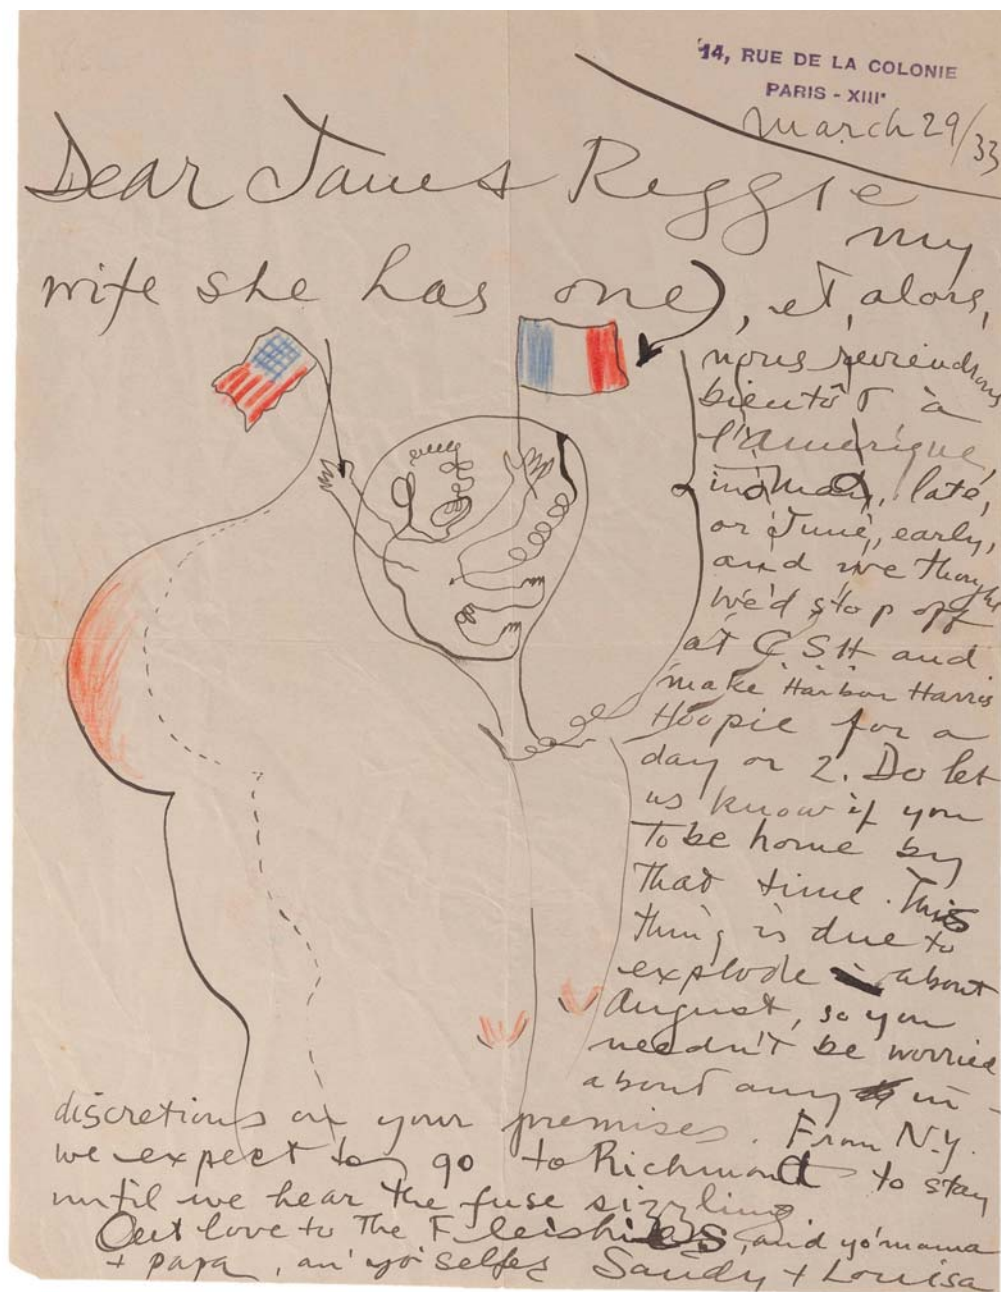 14, RUE DE LA COLONIE
PARIS - XIIIᵉ
March 29/33
Dear James Reggie
my
wife she has one, et, alors,
nous reviendrons
bientôt à
l'amérique,
in May, late,
or June, early,
and we thought
we'd stop off
at CSH and
make Harbor Harris
Hoopie for a
day or 2. Do let
us know if you
to be home by
that time. This
thing is due to
explode about
August, so you
needn't be worried
about any in-
discretions on your premises. From N.Y.
we expect to go to Richmond to stay
until we hear the fuse sizzling
Out love to the Fleishies, and yo'mama
+ papa, an' yo' selfes Sandy + Louisa